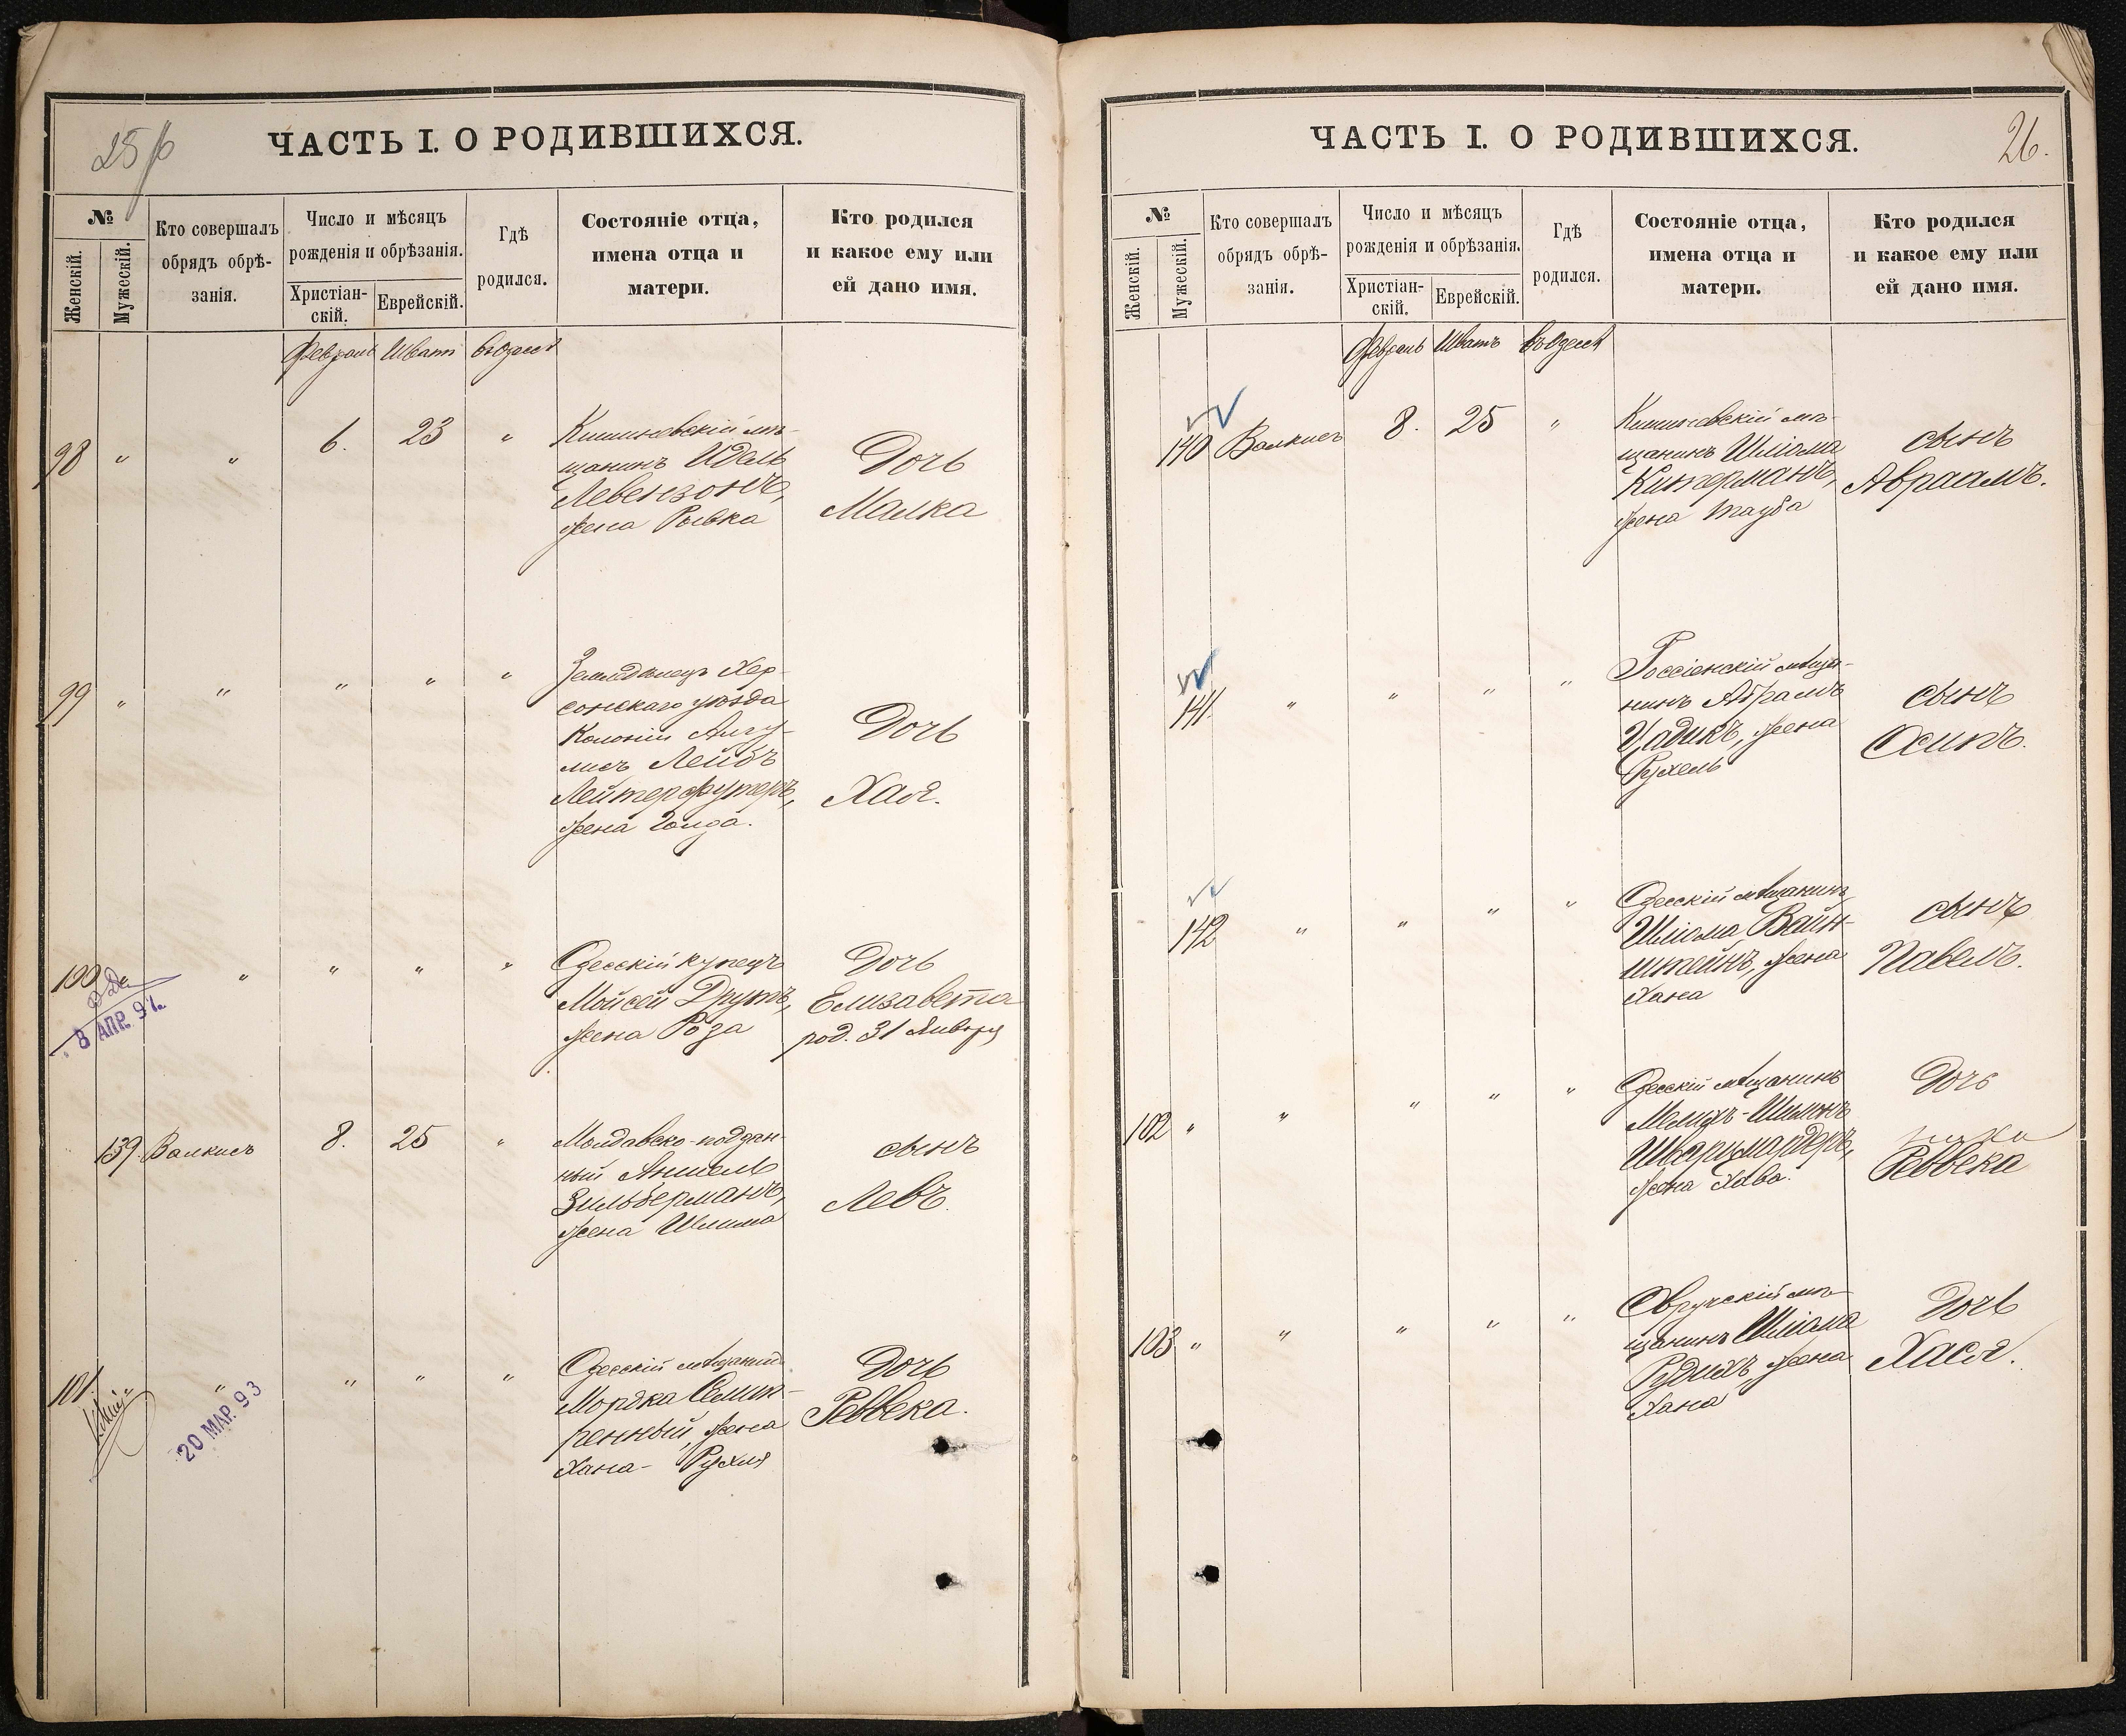 25 об
ЧАСТЬ I. О РОДИВШИХСЯ.
№
Женскій.
Мужескій.
Кто совершалъ
обрядъ обрѣ-
занія.
Число и мѣсяцъ
рожденія и обрѣзанія.
Христіан-
скій.
Еврейскій.
Гдѣ
родился.
Состояніе отца,
имена отца и
матери.
Кто родился
и какое ему или
ей дано имя.
Февраль Шватъ въ Одессѣ
98 " " 6. 23 "
Кишиневскій мѣ-
щанинъ Идель
Левензонъ,
жена Рывка
Дочь
Малка
99 " " " " "
Земледѣлецъ Хер-
сонскаго уѣзда
Колоніи
Лейбъ
Лейтерфутеръ,
жена Голда.
Дочь
Хая.
100 " " " "
8 АПР. 97.
Одесскій купецъ
Мойсей Друтъ,
жена Роза
Дочь
Елизавета
род. 31 Января
139. Валкисъ 8. 25 "
Молдавско-поддан-
ный Аншель
Зильберманъ,
жена Шлима
сынъ
Левъ.
101 " " " " "
20 МАР. 93
Одесскій мѣщанин
Мордка Семи-
ренный, жена
Хана- Рухля
Дочь
Реввека.
26.
ЧАСТЬ I. О РОДИВШИХСЯ.
№
Женскій.
Мужескій.
Кто совершалъ
обрядъ обрѣ-
занія.
Число и мѣсяцъ
рожденія и обрѣзанія.
Христіан-
скій.
Еврейскій.
Гдѣ
родился.
Состояніе отца,
имена отца и
матери.
Кто родился
и какое ему или
ей дано имя.
Февраль Шватъ въ Одессѣ
140 Валкисъ 8. 25 "
Кишиневскій мѣ-
щанинъ Шліома
Китерманъ,
жена Тауба
сынъ
Авраамъ.
141. " " " "
Россіенскій мѣща-
нинъ Абрамъ
Цадикъ, жена
Рухель
сынъ
Осипъ.
142 " " " "
Одесскій мѣщанинъ
Шліома Вайн-
штейнъ, жена
Хана
сынъ
Павелъ.
102 " " " " "
Одесскій мѣщанинъ
Мелихъ-Шимонъ
Шварцмардеръ,
жена Хава.
Дочь
Реввека
103 " " " " "
Овручскій мѣ-
щанинъ Шліома
Рудихъ жена
Хана
Дочь
Хася.